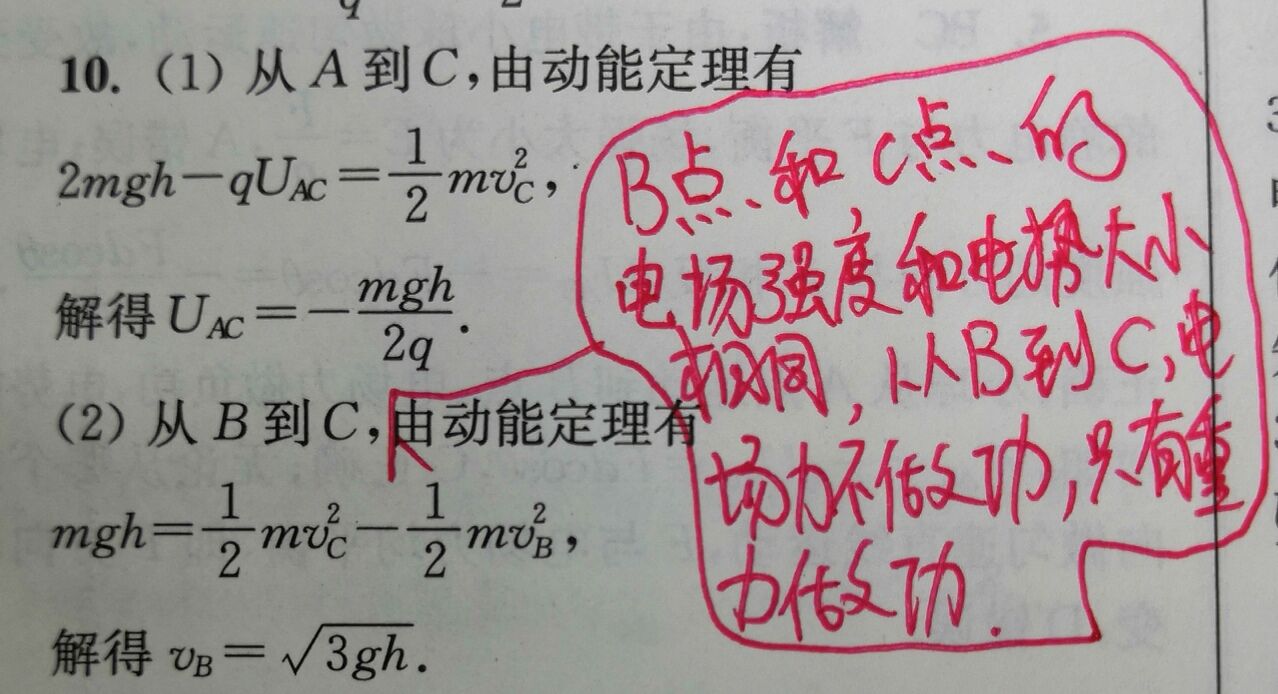 q 2
10. (1) 从 A 到 C,由动能定理有
2mgh－qU_AC＝1/2 mv_C²,
解得 U_AC＝－mgh/2q.
(2) 从 B 到 C,由动能定理有
mgh＝1/2 mv_C²－1/2 mv_B²,
解得 v_B＝√3gh.
B点和C点的
电场强度和电势大小
相同,从B到C,电
场力不做功,只有重
力做功.